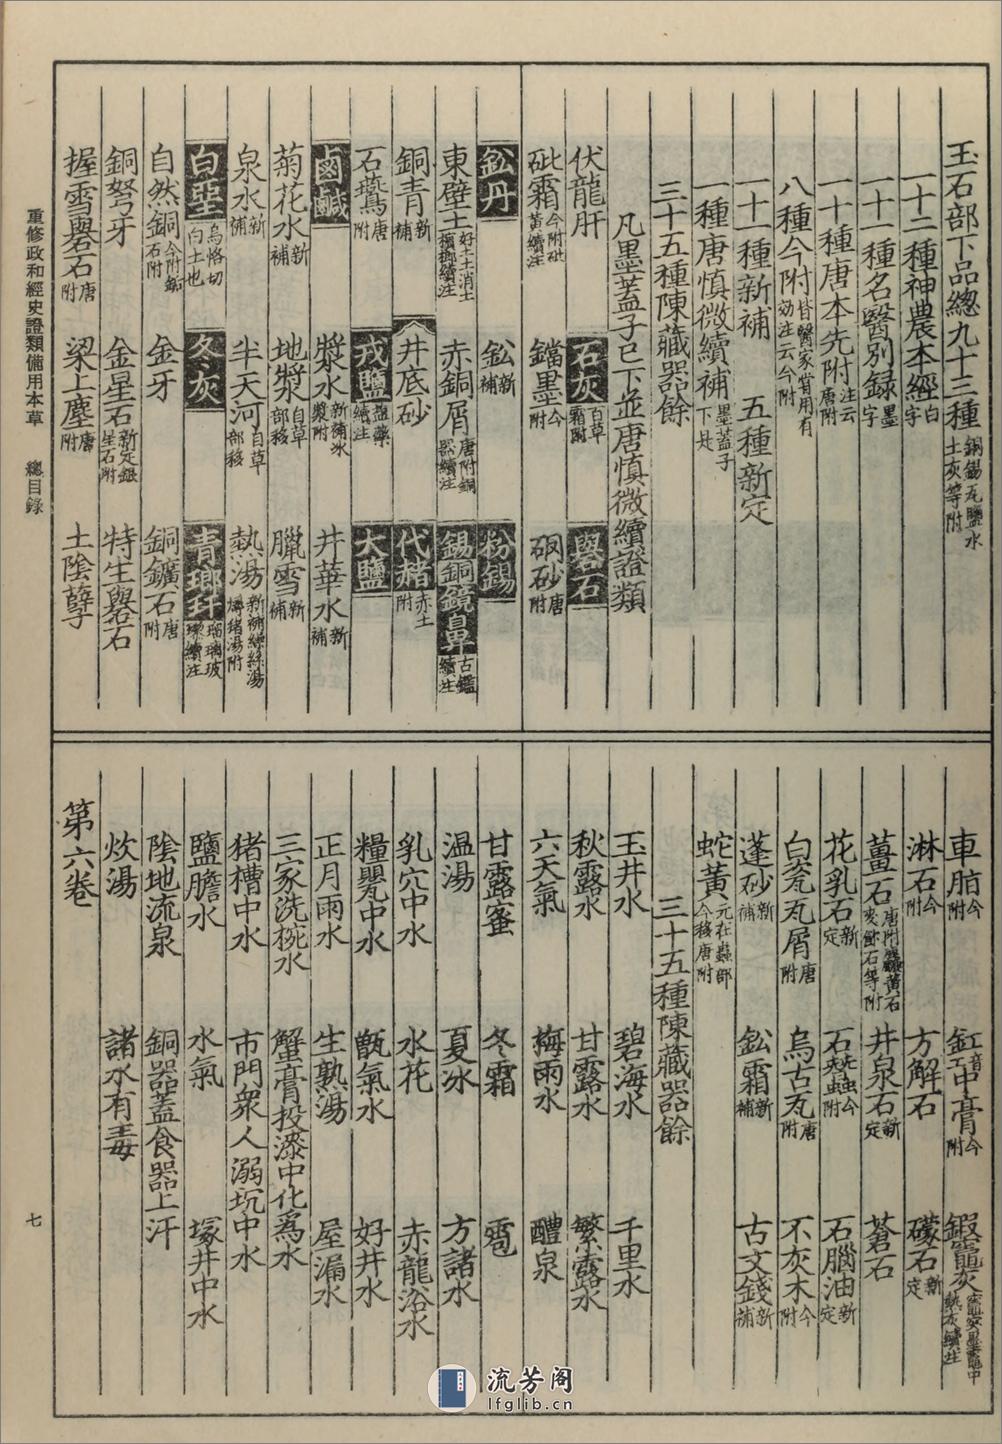 玉石部下品總九十三種銅錫瓦鹽水土灰等附
一十二種神農本經白字
一十一種名醫別録墨字
一十種唐本先附注云唐附
八種今附皆醫家嘗用有效注云今附
一十一種新補　五種新定
一種唐慎微續補墨蓋子下是
三十五種陳藏器餘
凡墨蓋子已下並唐慎微續證類
伏龍肝　石灰百草霜附　礜石
砒霜今附砒黃續注　鐺墨今附　硇砂唐附
鈆丹　鈆新補　粉錫
東壁土好土土消土檳榔續注　赤銅屑唐附銅器續注　錫銅鏡鼻古鑑續注
銅青新補　井底砂　代赭赤土附
石鷰唐附　戎鹽鹽藥續注　大鹽
鹵鹹　漿水新補冰漿附　井華水新補
菊花水新補　地漿自草部移　臘雪新補
泉水新補　半天河自草部移　熱湯新補繰絲湯燖猪湯附
白堊烏恪切白土也　冬灰　青瑯玕瑠璃玻瓈續注
自然銅今附鉐石附　金牙　銅鑛石唐附
銅弩牙　金星石新定銀星石附　特生礜石
握雪礜石唐附　梁上塵唐附　土陰孽
重修政和經史證類備用本草　總目錄
七
車脂今附　釭音工中膏今附　鍜竈灰竈突墨竈中熱灰續注
淋石今附　方解石　礞石新定
薑石唐附麤黃石麥飯石等附　井泉石新定　蒼石
花乳石新定　石蠶今附　石腦油新定
白瓷瓦屑唐附　烏古瓦唐附　不灰木今附
蓬砂新補　鈆霜新補　古文錢新補
蛇黃元在蟲部今移唐附
三十五種陳藏器餘
玉井水　碧海水　千里水
秋露水　甘露水　繁露水
六天氣　梅雨水　醴泉
甘露蜜　冬霜　雹
温湯　夏冰　方諸水
乳穴中水　水花　赤龍浴水
糧甖中水　甑氣水　好井水
正月雨水　生熟湯　屋漏水
三家洗椀水　蟹膏投漆中化爲水
猪槽中水　市門衆人溺坑中水
鹽膽水　水氣　塚井中水
陰地流泉　銅器蓋食器上汗
炊湯　諸水有毒
第六卷
流芳阁
lfglib.cn